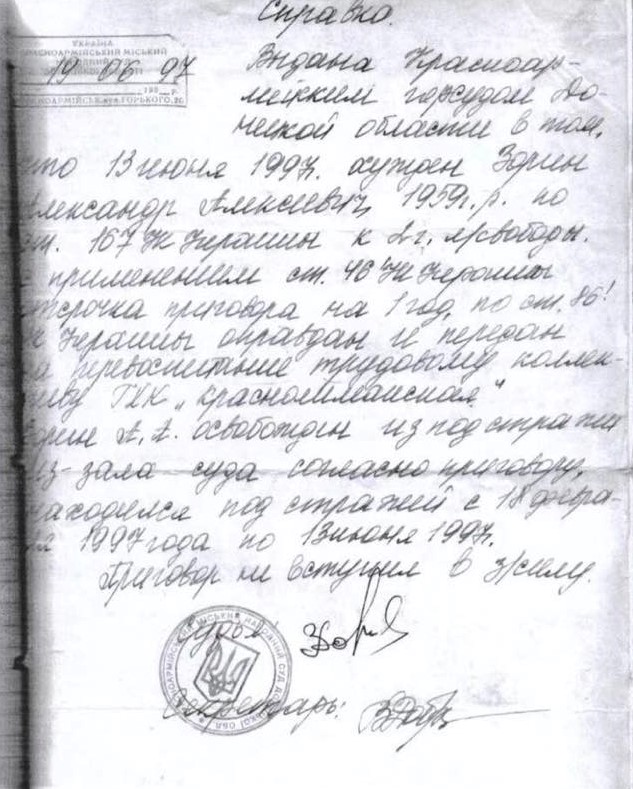 Справка.
УКРАЇНА
КРАСНОАРМІЙСЬКИЙ МІСЬКИЙ
19 06 97
199 р.
КРАСНОАРМІЙСЬК, вул. ГОРЬКОГО, 26
Выдана Красноар-
мейским горсудом До-
нецкой области в том,
что 13 июня 1997г. осужден Зорин
Александр Алексеевич, 1959г.р. по
ст. 167 УК Украины к 2 г. л/свободы.
с применением ст. 46' УК Украины
отсрочка приговора на 1 год, по ст. 86'
УК Украины оправдан и передан
на перевоспитание трудовому коллек-
тиву ГХК „Краснолиманская"
Зорин А.А. освобожден из под стражи
из-зала суда согласно приговору,
находился под стражей с 18 февра-
ля 1997 года по 13 июня 1997г.
Приговор не вступил в з/силу.
Судья
Секретарь:
КРАСНОАРМІЙСЬКИЙ МІСЬКИЙ НАРОДНИЙ СУД ДОНЕЦЬКОЇ ОБЛ.